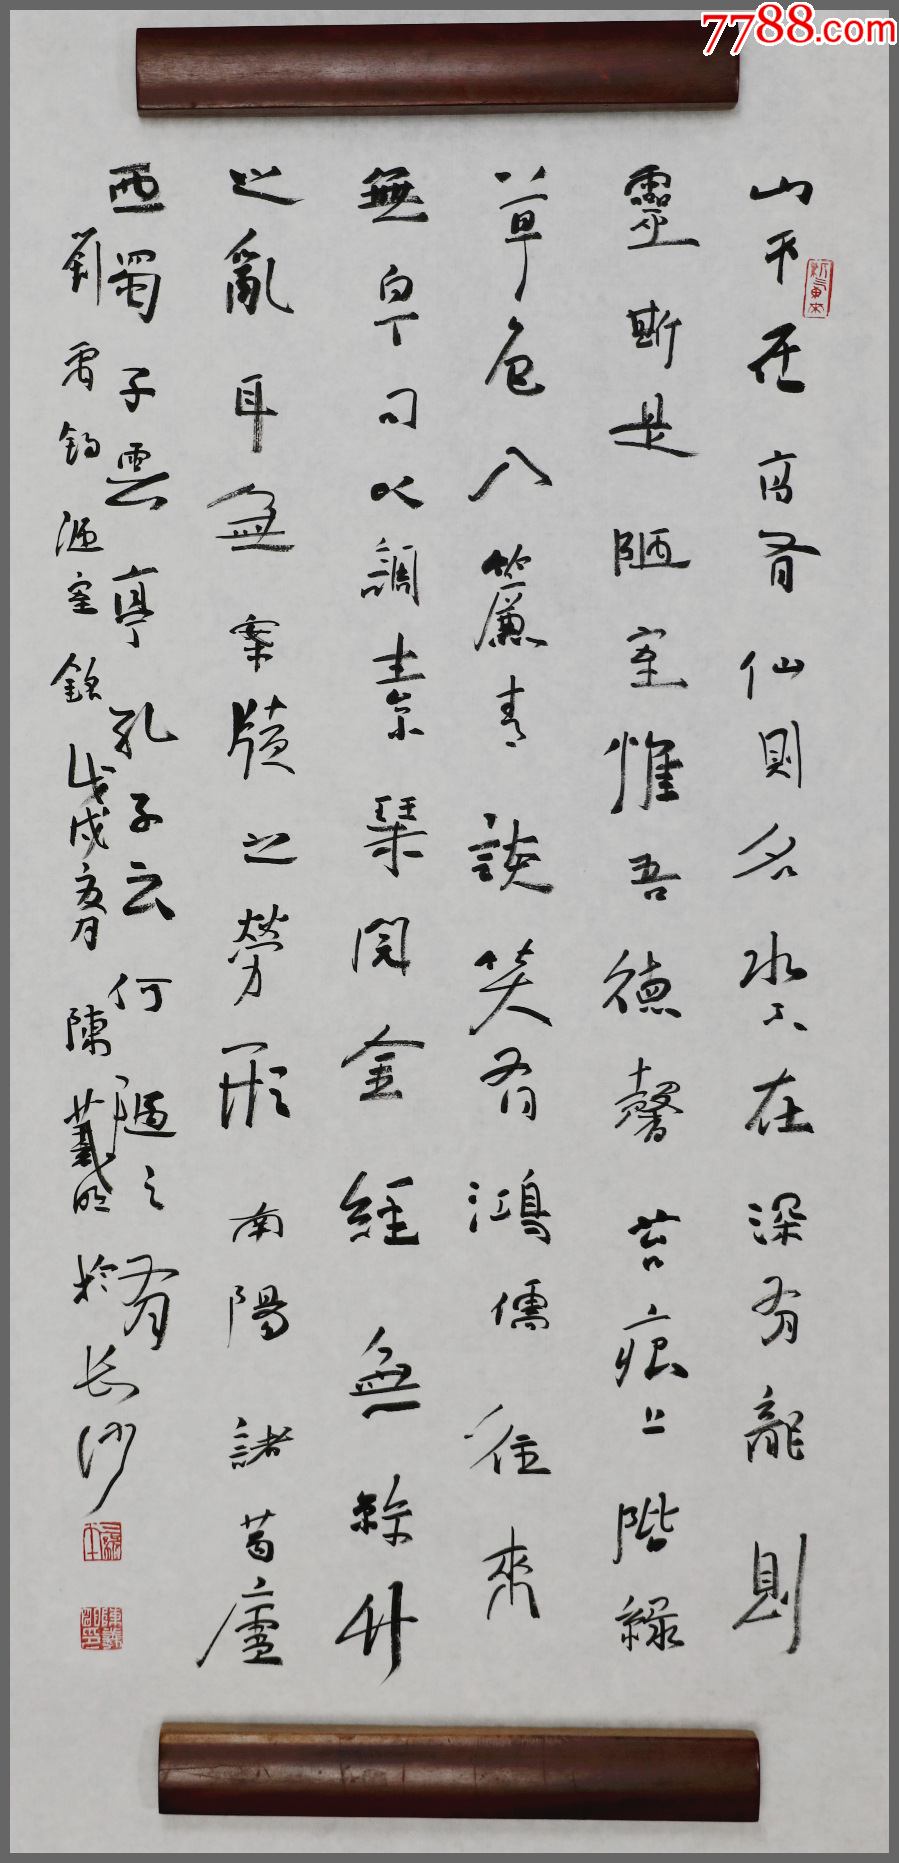 山不在高有仙則名水不在深有龍則
靈斯是陋室惟吾德馨苔痕上階緑
草色入簾青談笑有鴻儒往來
無白丁可以調素琴閱金經無絲竹
之亂耳無案牘之勞形南陽諸葛廬
西蜀子雲亭孔子云何陋之有
劉禹錫陋室銘戊戌陳羲明於長沙
7788.com